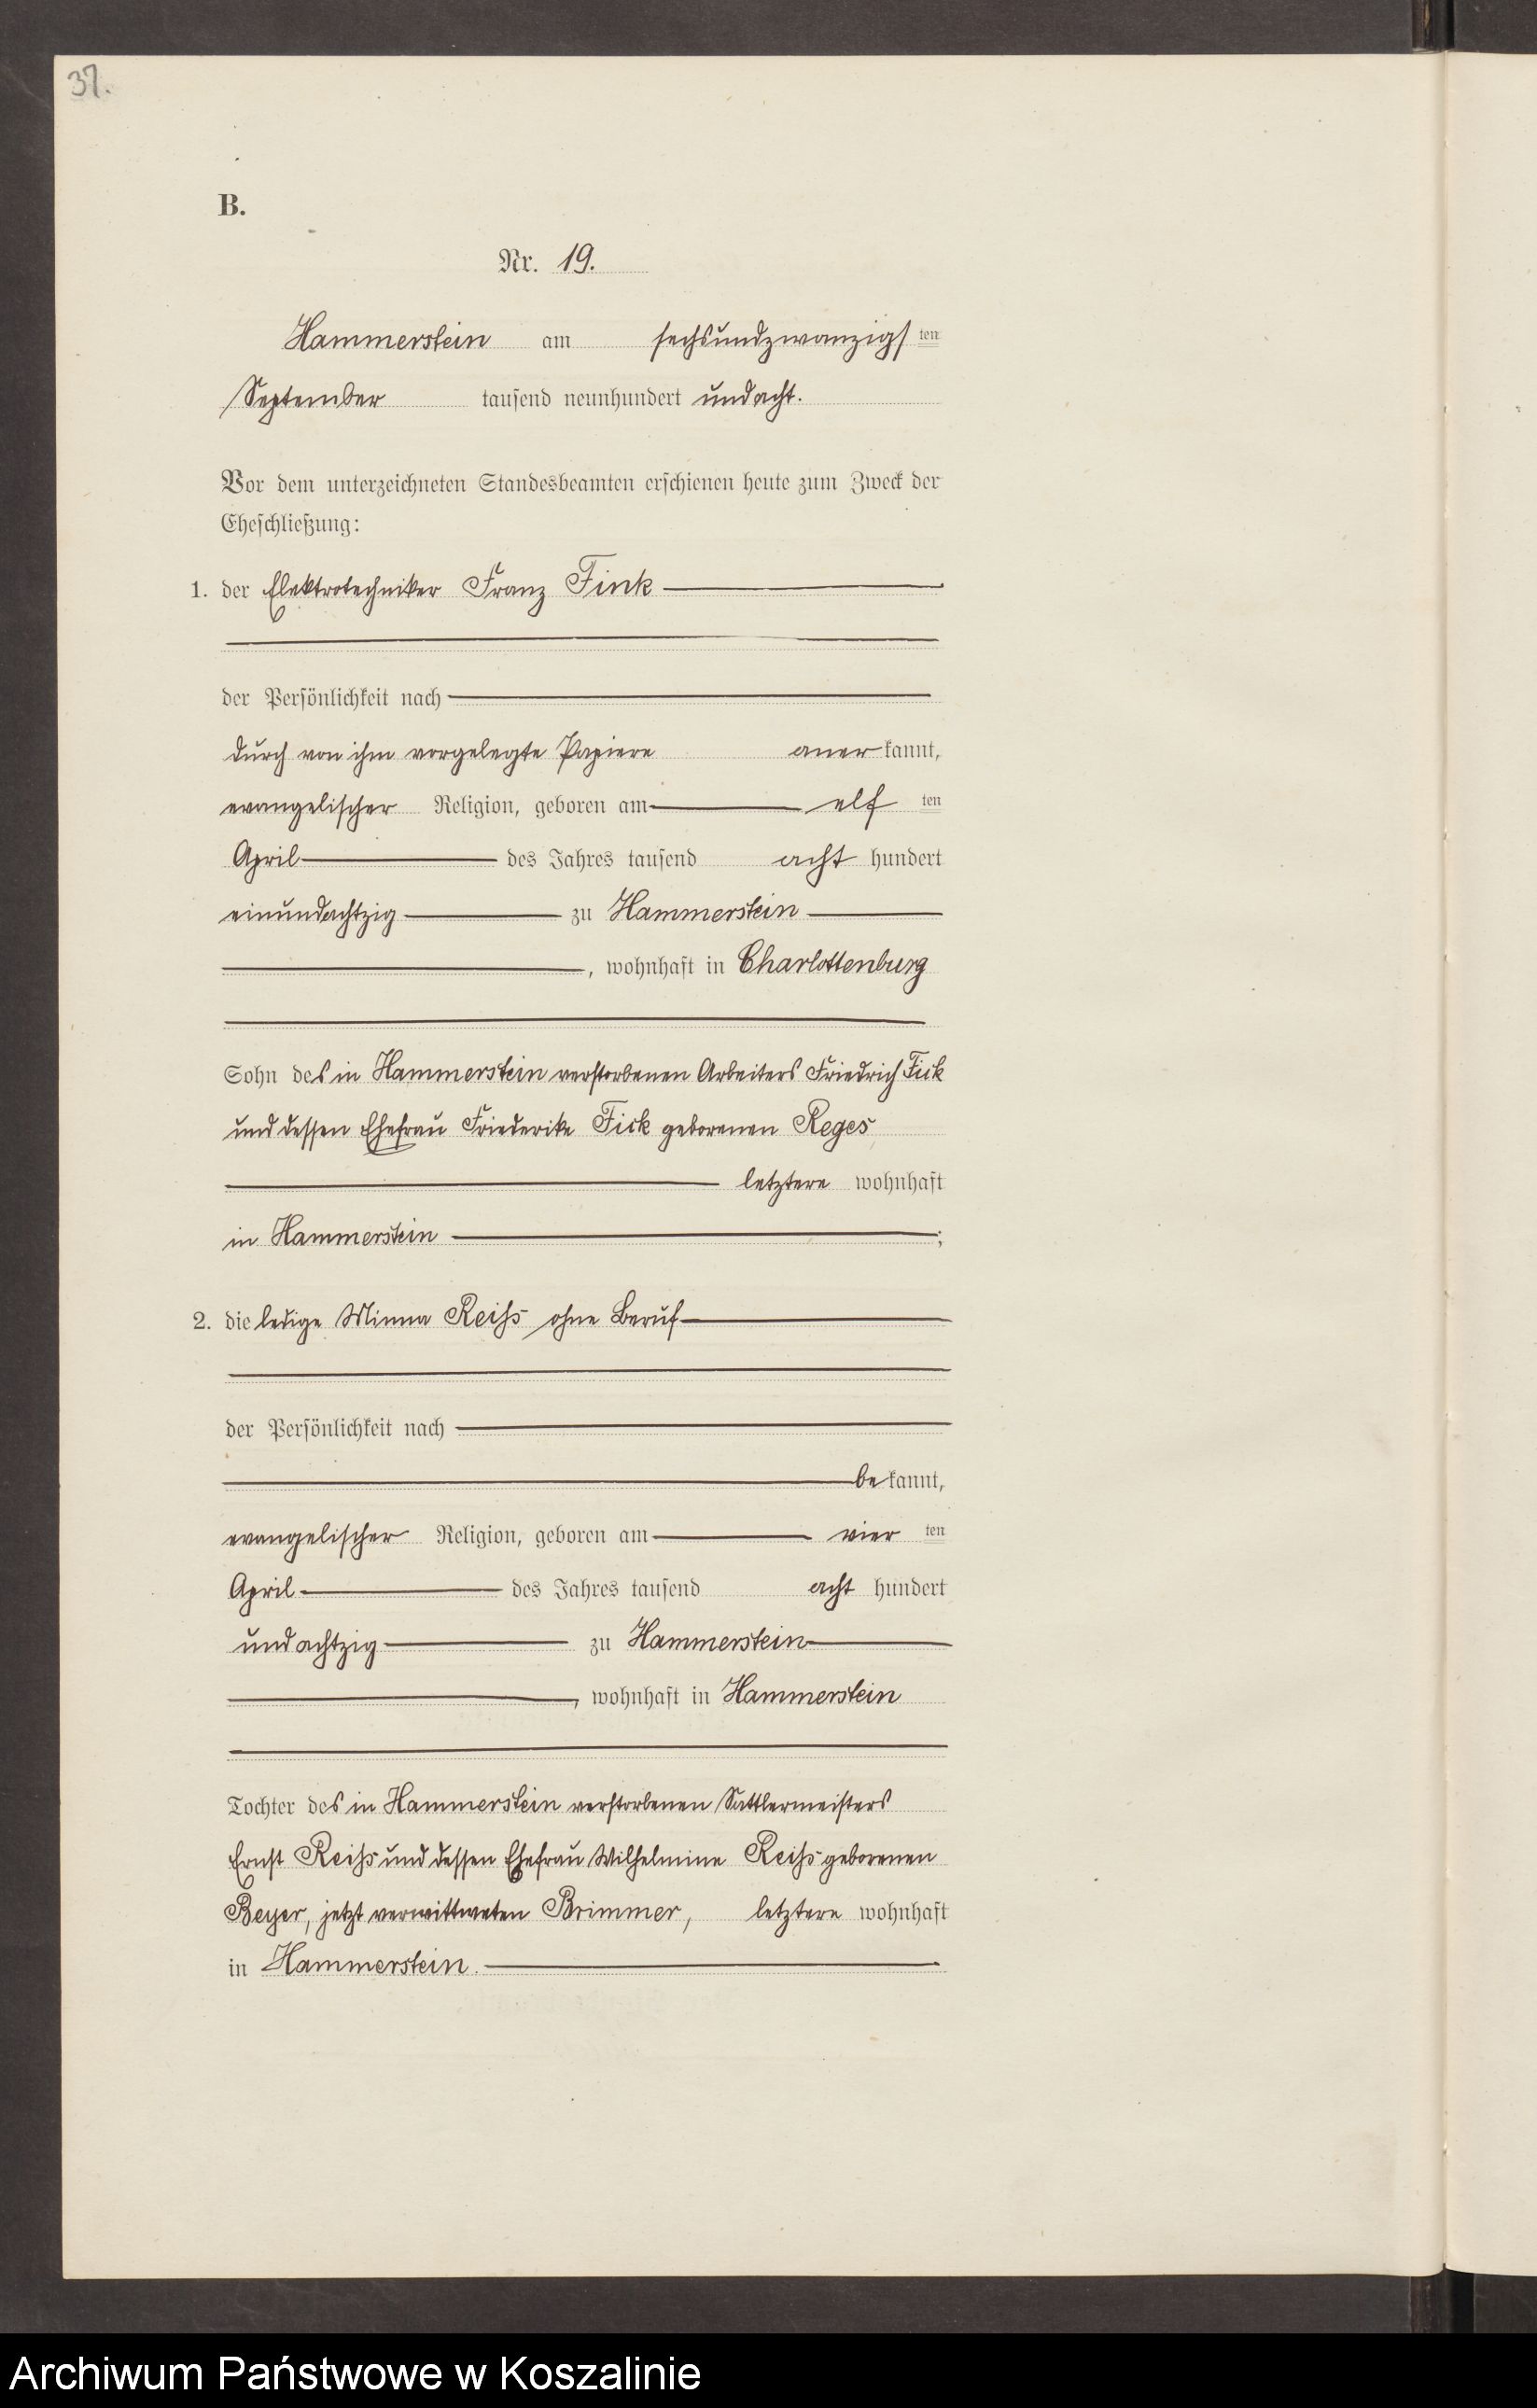 37.
B.
Nr. 19.
Hammerstein am sechsundzwanzigsten
September tausend neunhundert und acht.
Vor dem unterzeichneten Standesbeamten erschienen heute zum Zweck der
Eheschließung:
1. der Elektrotechniker Franz Fink
der Persönlichkeit nach
durch von ihm vorgelegte Papiere anerkannt,
evangelischer Religion, geboren am elften
April des Jahres tausend acht hundert
einundachtzig zu Hammerstein
, wohnhaft in Charlottenburg
Sohn des in Hammerstein verstorbenen Arbeiters Friedrich Fick
und dessen Ehefrau Friederike Fick geborenen Reges
letztere wohnhaft
in Hammerstein ;
2. die ledige Minna Reiß ohne Beruf
der Persönlichkeit nach
bekannt,
evangelischer Religion, geboren am vierten
April des Jahres tausend acht hundert
und achtzig zu Hammerstein
, wohnhaft in Hammerstein
Tochter des in Hammerstein verstorbenen Sattlermeisters
Ernst Reiß und dessen Ehefrau Wilhelmine Reiß geborenen
Beyer, jetzt verwittweten Brimmer, letztere wohnhaft
in Hammerstein.
Archiwum Państwowe w Koszalinie